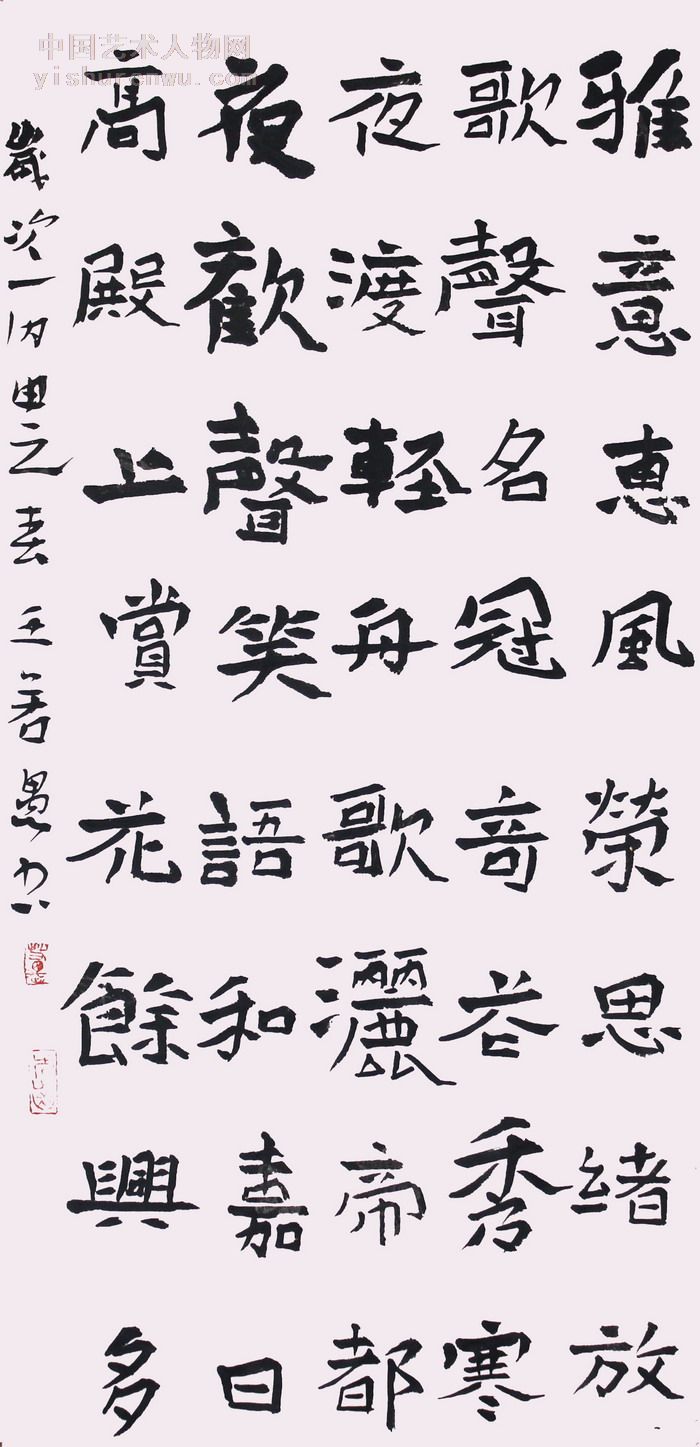 中国艺术人物网
yishurenwu.com
雅意惠風榮思緒放
歌聲名冠奇谷秀寒
夜渡輕舟歌灑帝都
夜歡聲笑語和嘉日
高殿上賞花餘興多
歲次丙申之春王君